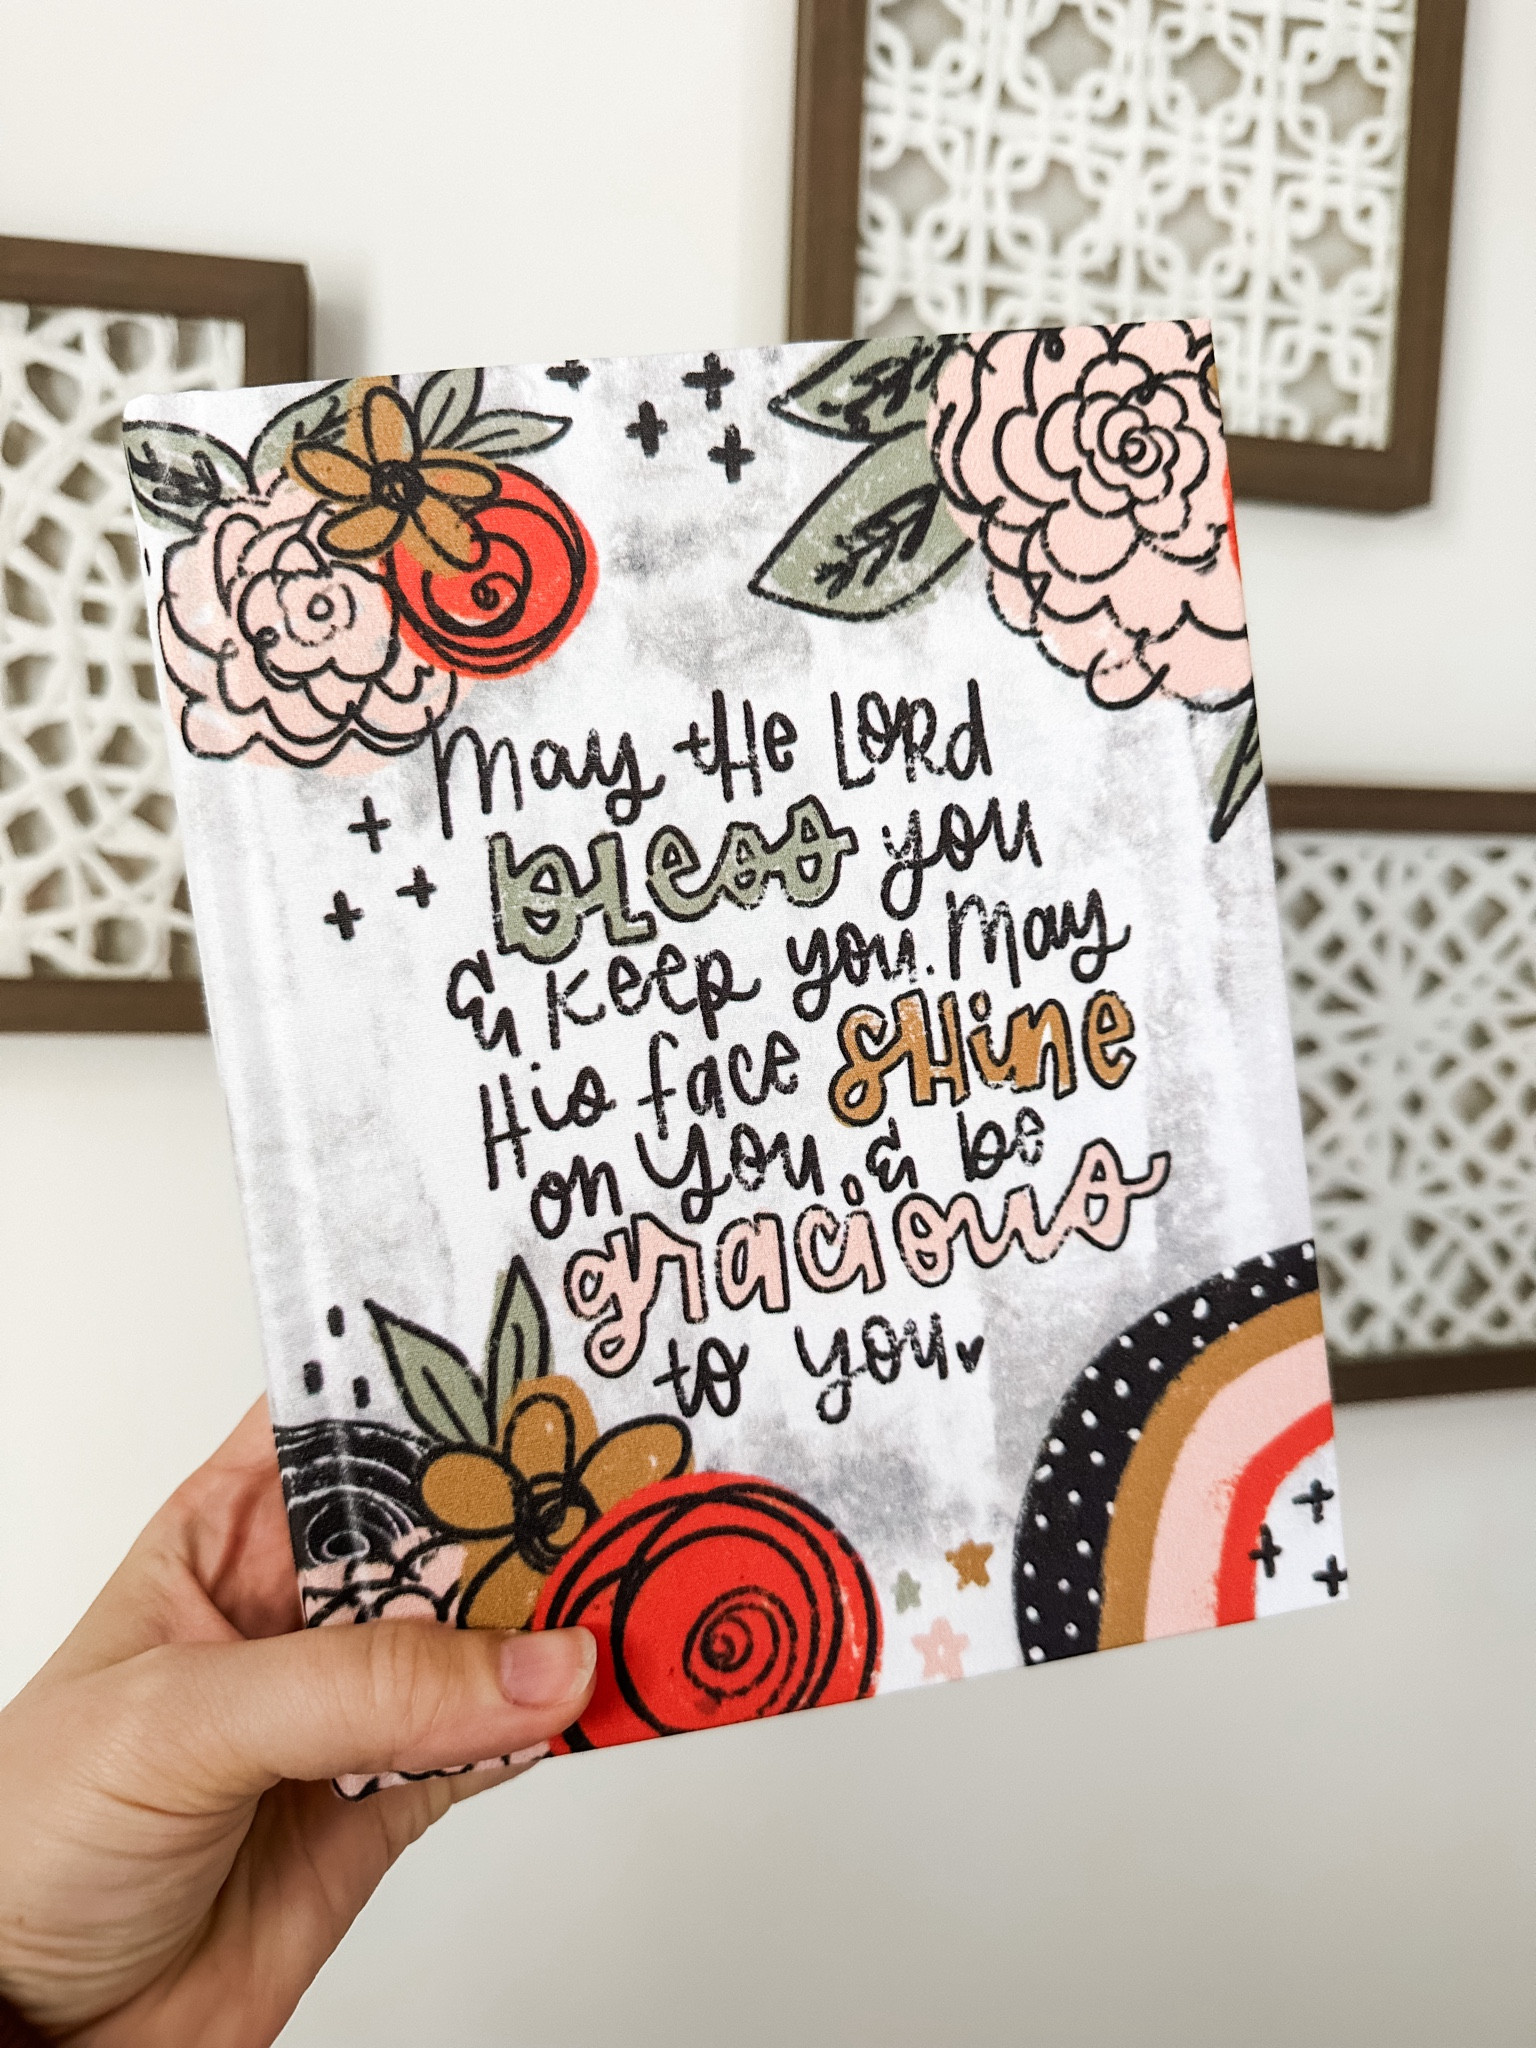 May the Lord
bless you
& keep you. May
His face shine
on you & be
gracious
to you